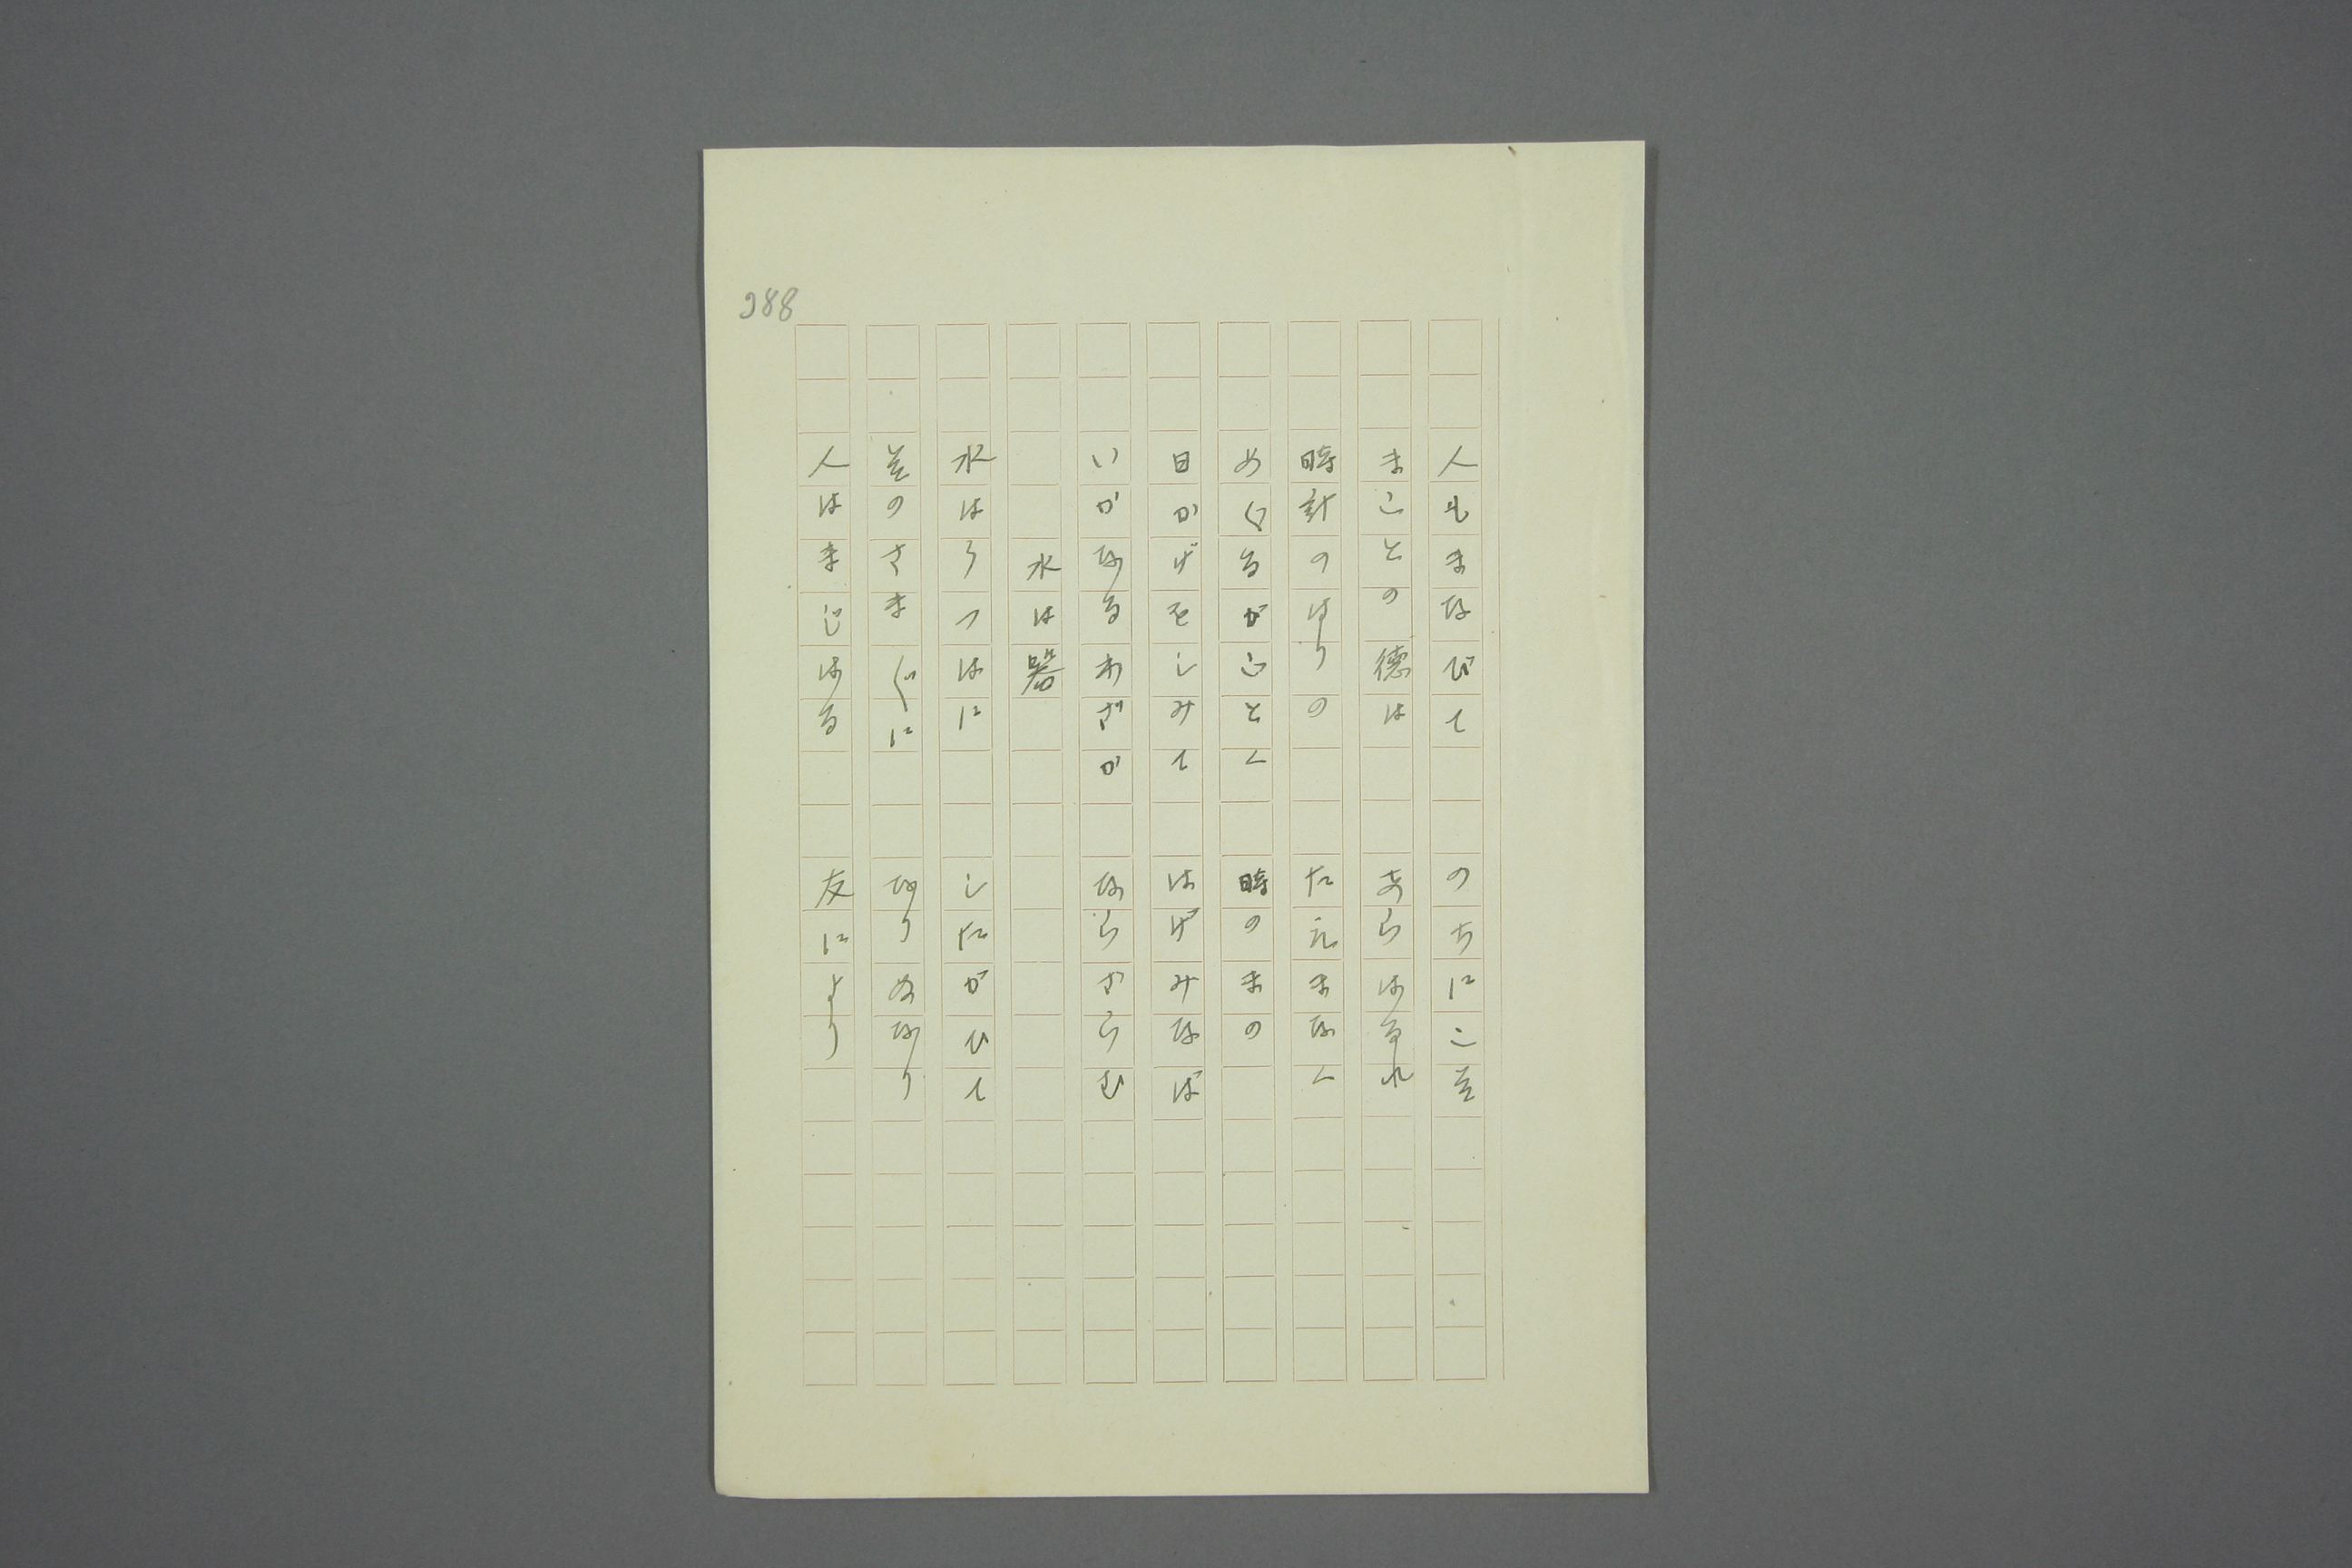 288
人もまなびて　　のちにこそ
まことの徳は　　あらはるれ
時計のはりの　　たえまなく
めぐるがごとく　時のまの
日かげをしみて　はげみなば
いかなるわざか　ならざらむ
水は器
水はうつはに　　したがひて
そのさま〲に　　なりぬなり
人はまじはる　　友により